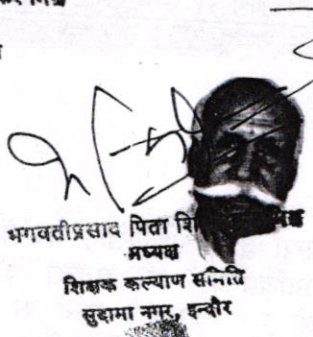 भगवतीप्रसाद पिता
अध्यक्ष
शिक्षक कल्याण समिति
सुदामा नगर, इन्दौर